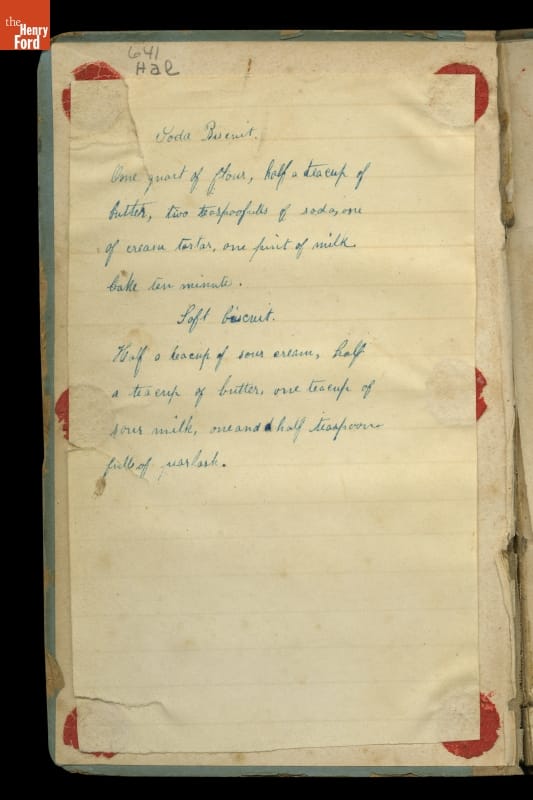 the
Henry
Ford
641
Hal
Soda Biscuit.
One quart of flour, half a teacup of
butter, two teaspoofulls of soda, one
of cream tartar, one pint of milk
bake ten minute.
Soft biscuit.
Half a teacup of sour cream, half
a teacup of butter, one teacup of
sour milk, one and half teaspoon
full of pearlash.